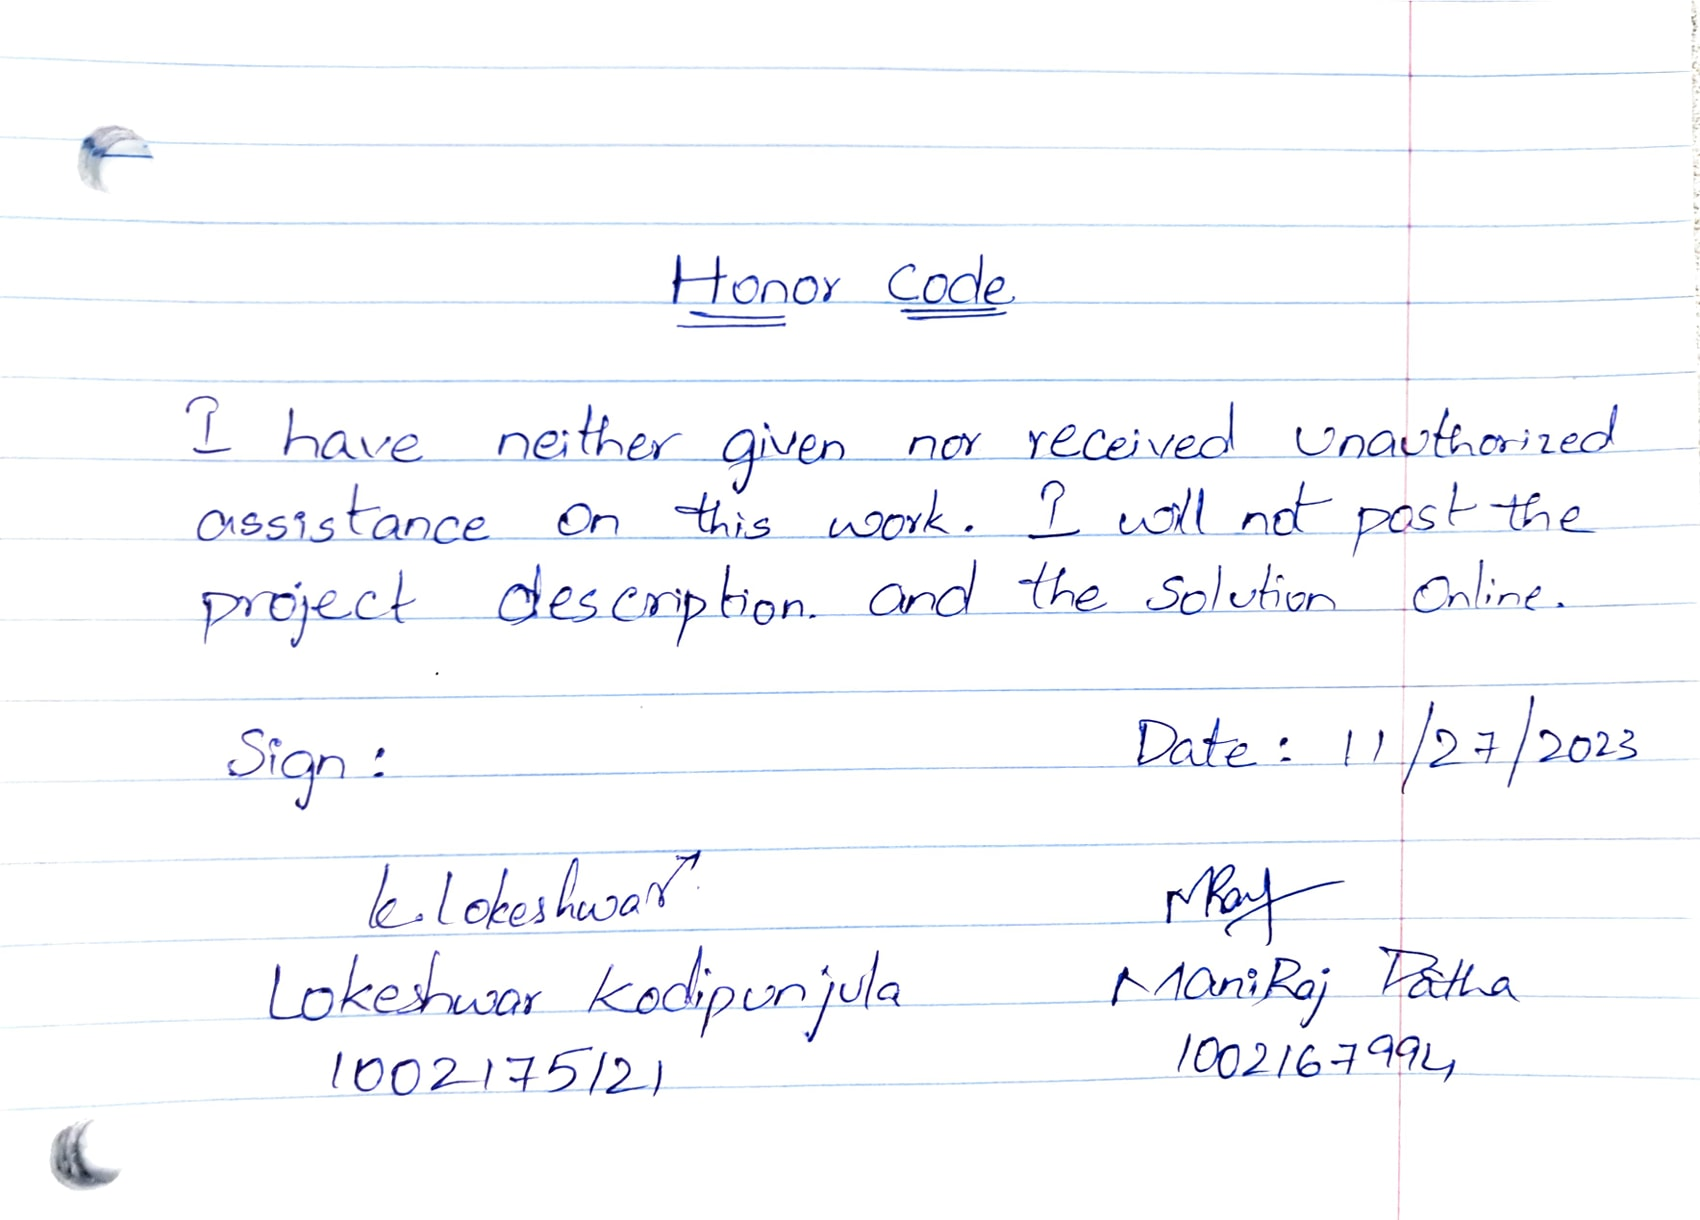 Honor Code
I have neither given nor received unauthorized
assistance on this work. I will not post the
project description. and the solution Online.
Sign : Date : 11/27/2023
k.lokeshwar MRaj
Lokeshwar Kodipunjula ManiRaj Patha
1002175121 1002167994